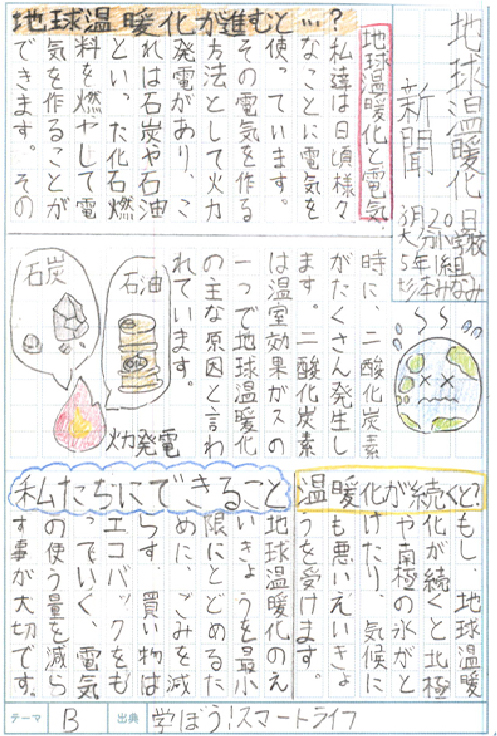 地球温暖化
新聞
3月20日
大分小学校
5年1組
杉本みなみ
地球温暖化が進むと…?
地球温暖化と電気
私達は日頃様々
なことに電気を
使っています。
その電気を作る
方法として火力
発電があり、こ
れは石炭や石油
といった化石燃
料を燃やして電
気を作ることが
できます。その
時に、二酸化炭素
がたくさん発生し
ます。二酸化炭素
は温室効果ガスの
一つで地球温暖化
の主な原因と言わ
れています。
石油
石炭
火力発電
温暖化が続くと?
もし、地球温暖
化が続くと北極
や南極の氷がと
けたり、気候に
も悪いえいきょ
うを受けます。
私たちにできること
地球温暖化のえ
いきょうを最小
限にとどめるた
めに、ごみを減
らす、買い物は
エコバックをも
っていく、電気
の使う量を減ら
す事が大切です。
テーマ B 出典 学ぼう!スマートライフ